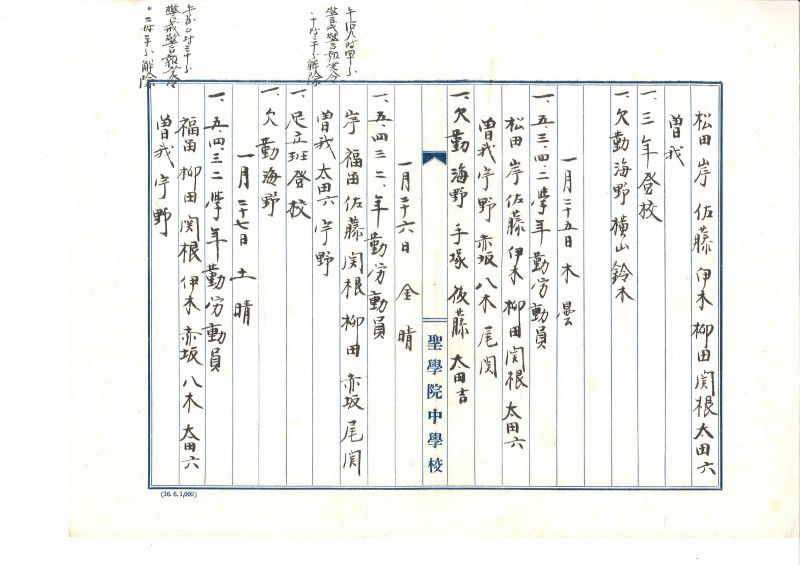 松田 岸 佐藤 伊木 柳田 関根 太田六
曽我
一、三年登校
一、欠勤 海野 横山 鈴木
一月二十五日 木 曇
一、五、三、四、二学年勤労動員
松田 岸 佐藤 伊木 柳田 関根 太田六
曽我 宇野 赤坂 八木 尾関
一、欠勤 海野 手塚 後藤 太田吉
聖學院中學校
一月二十六日 金 晴
一、五、四、三、二、年勤労動員
岸 福田 佐藤 関根 柳田 赤坂 尾関
曽我 太田六 宇野
一、足立班登校
一、欠勤 海野
警戒警報発令
解除
一月二十七日 土 晴
一、五、四、三、二学年勤労動員
福田 柳田 関根 伊木 赤坂 八木 太田六
曽我 宇野
警戒警報発令
解除
(16. 6. 1,000)